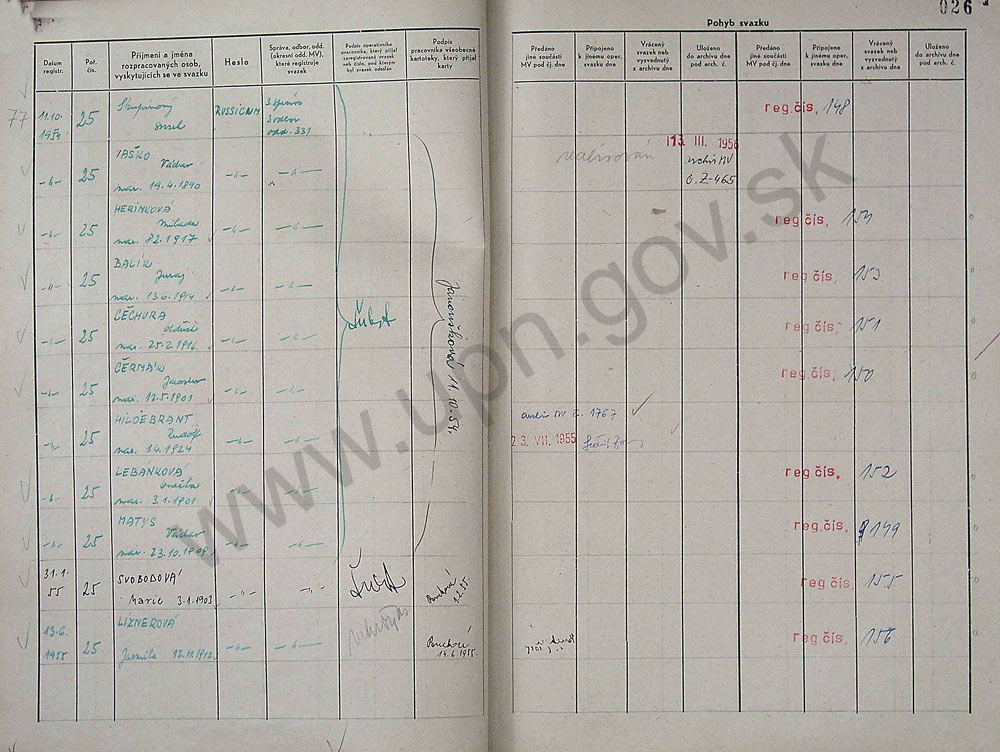 026
Pohyb svazku
Datum registr.
Poř. čís.
Příjmení a jména rozpracovaných osob, vyskytujících se ve svazku
Heslo
Správa, odbor, odd. (okresní odd. MV), které registruje svazek
Podpis operativního pracovníka, který přijal zaregistrovaný svazek neb číslo, pod kterým byl svazek odeslán
Podpis pracovníka všeobecné kartoteky, který přijal karty
Předáno jiné součásti MV pod čj. dne
Připojeno k jinému oper. svazku dne
Vrácený svazek neb vyzvednutý z archivu dne
Uloženo do archivu dne pod arch. č.
Předáno jiné součásti MV pod čj. dne
Připojeno k jinému oper. svazku dne
Vrácený svazek neb vyzvednutý z archivu dne
Uloženo do archivu dne pod arch. č.
77
11.10. 1954 25 Skupinový svazek RUSSICUM 3. správa 3. odbor odd. 331 reg.čís. 148
25 VAŠKO Václav nar. 19.4.1890 realisován 13. III. 1956 archiv MV
25 HERINKOVÁ nar. 8.2.1917 reg.čís. 154
25 BALIK Juraj nar. 13.6.1914 reg.čís. 153
25 ČECHURA nar. 25.2.1916 reg.čís. 151
25 ČERMÁK Jaroslav nar. 12.5.1901 reg.čís. 150
25 HILDEBRANT Rudolf nar. 1.4.1924 archiv MV č. 1767 23. VII. 1955
25 LEBÁNKOVÁ nar. 3.1.1901 reg.čís. 152
25 MATYS Václav nar. 23.10.1909 reg.čís. 149
Janoušková 11.10.54.
31.1. 55 25 SVOBODOVÁ Marie 3.1.1903 reg.čís. 155
13.6. 1955 25 LIZNEROVÁ Jarmila 14.6.1955. reg.čís. 156
www.upn.gov.sk